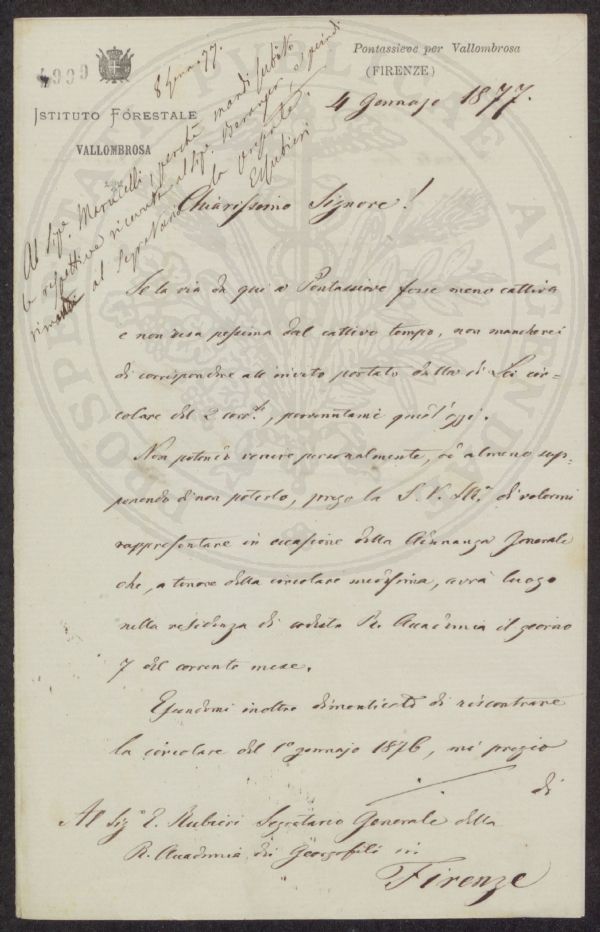 4999
ISTITUTO FORESTALE
VALLOMBROSA
Pontassieve per Vallombrosa
(FIRENZE)
4 Gennajo 1877.
8 Genn. 77.
Al Sigr. Marucelli, perchè mandi subito
le rispettive ricevute al Sigr. Beranger, e quindi
rimandi al Segretario la presente.
ERubieri
Chiarissimo Signore!
Se la via da qui a Pontassieve fosse meno cattiva
e non resa pessima dal cattivo tempo, non mancherei
di corrispondere all'invito portato dalla di Lei cir=
colare del 2 corrte, pervenutami quest'oggi.
Non potendo venire personalmente, od almeno sup=
ponendo di non poterlo, prego la S. V. Illa. di volermi
rappresentare in occasione della Adunanza generale
che, a tenore della circolare medesima, avrà luogo
nella residenza di codesta R. Accademia il giorno
7 del corrente mese.
Essendomi inoltre dimenticato di riscontrare
la circolare del 1° gennajo 1876, mi pregio
di
Al Sigr E. Rubieri Segretario Generale della
R. Accademia dei Georgofili in
Firenze
PROSPERITATI PUBLICAE AUGENDAE